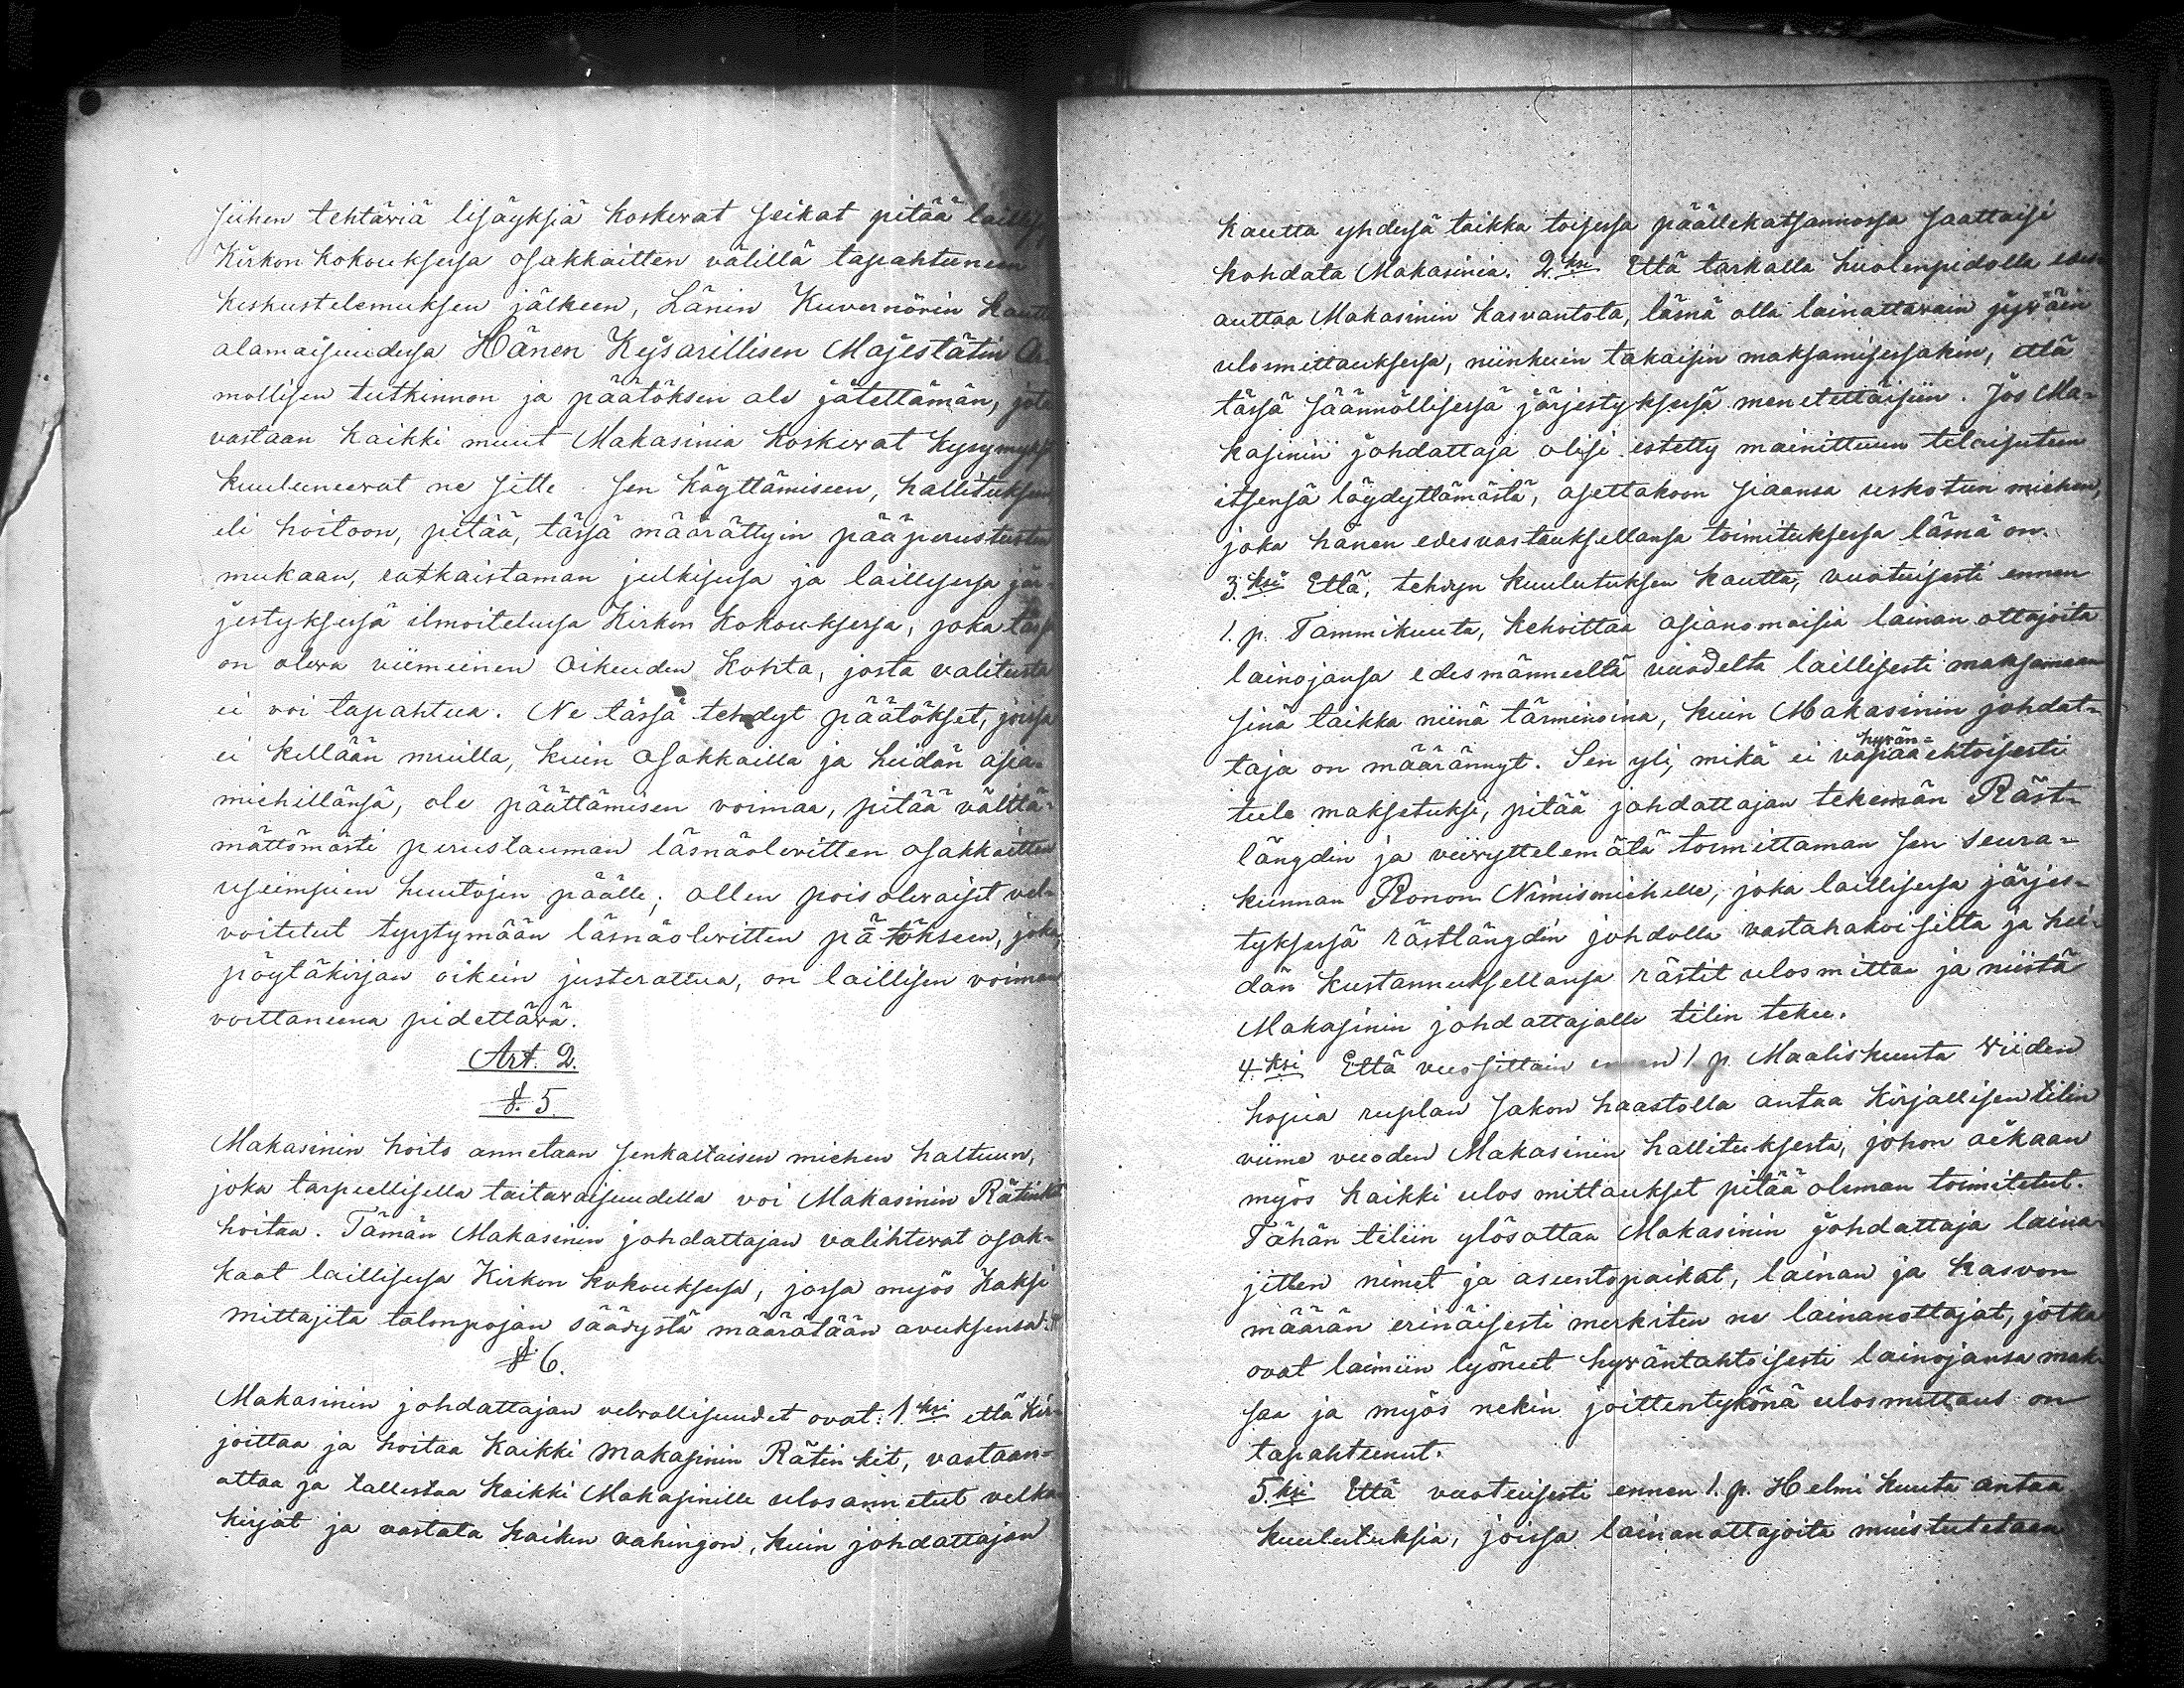 siihen tehtäwiä lisäyksiä koskewat seikat pitää
Kirkon kokouksessa osakkaitten välillä tapahtuneen
keskustelemuksen jälkeen, Länin Kuvernörin kautta
alamaisuudessa Hänen Keisarillisen Majestätin Ar-
mollisen tutkinnon ja päätöksen ale jätettämän, jota
vastaan kaikki muut Makasinia koskewat kysymykset
kuuluneewat ne sitte sen käyttämiseen, hallituksen
eli hoitoon, pitää, tässä määrättyin pääperustusten
mukaan, ratkaistaman julkisessa ja laillisessa jär-
jestyksessä ilmoitetussa Kirkon Kokouksessa, joka tässä
on olewa viimeinen Oikeuden Kohta, josta valitusta
ei voi tapahtua. Ne tässä tehdyt päätökset, joissa
ei kellään muilla, kuin Osakkailla ja heidän asia-
miehillänsä, ole päättämisen voimaa, pitää välttä-
mättömästi perustauman läsnäolevitten osakkaitten
useimpien huutojen päälle; ollen pois olewaiset vel-
voitetut tyytymään läsnäolevitten pätökseen, joka,
pöytäkirjan oikein justerattua, on laillisen voiman
voittaneena pidettävä.
Art. 2.
§. 5.
Makasinin hoito annetaan senkaltaisen miehen haltuun,
joka tarpeellisella taitawaisuudella voi Makasinin Rätinkit
hoitaa. Tämän Makasinin johdattajan valihtewat osak-
kaat laillisessa Kirkon kokouksessa, jossa myös Kaksi
mittajita talonpojan säädystä määrätään avuksensa.
§ 6.
Makasinin johdattajan velvollisuudet ovat: 1.ksi että kir-
joittaa ja hoitaa kaikki Makasinin Rätinkit, vastaan-
ottaa ja tallestaa kaikki Makasinille ulosannetut velka
kirjat ja vastata kaiken vahingon, kuin johdattajan
kautta yhdessä taikka toisessa päällekatsannossa saattaisi
kohdata Makasinia. 2.ksi Että tarkalla huolenpidolla edes
auttaa Makasinin kasvantota, läsnä olla lainattawain jywäin
ulosmittauksessa, niinkuin takaisin maksamisessakin, että
tässä säännöllisessä järjestyksessä menetettäisiin. Jos Ma-
kasinin johdattaja olisi estetty mainittuun tilaisuteen
itsensä löydyttämästä, asettakoon siaansa uskotun miehen,
joka hänen edesvastauksellansa toimituksessa läsnä on.
3.ksi Että, tehdyn kuulutuksen kautta, vuotuisesti ennen
1. p. Tammikuuta, kehoittaa asianomaisia lainan ottajoita
lainojansa edesmänneeltä vuodelta laillisesti maksamaan
sinä taikka niinä tärminoina, kuin Makasinin johdat-
taja on määrännyt. Sen yli, mikä ei vapaaehtoisesti
hyvän-
tule maksetuksi, pitää johdattajan tekemän Räst-
längdin ja viivyttelemätä toimittaman sen seura-
kunnan Ronon Nimismiehelle, joka laillisessa järjes-
tyksessä rästlängdin johdolla vastahakoisilta ja hei-
dän kustannuksellansa rästit ulosmittaa ja niistä
Makasinin johdattajalle tilin tekee.
4.ksi Että vuosittain ennen 1 p. Maaliskuuta Viiden
hopia ruplan sakon haastolla antaa Kirjallisen tilin
viime vuoden Makasinin hallituksesta, johon aikaan
myös kaikki ulos mittaukset pitää oleman toimitetut.
Tähän tiliin ylösottaa Makasinin johdattaja laina-
jitten nimet ja asuntopaikat, lainan ja kasvon
määrän erinäisesti merkiten ne lainanottajat, jotka
ovat laimiin lyöneet hywäntahtoisesti lainojansa mak-
saa ja myös nekin joittentykönä ulosmittaus on
tapahtunut.
5.ksi Että vuotuisesti ennen 1. p. Helmi kuuta antaa
kuulutuksia, joissa lainanottajoita muistutetaan